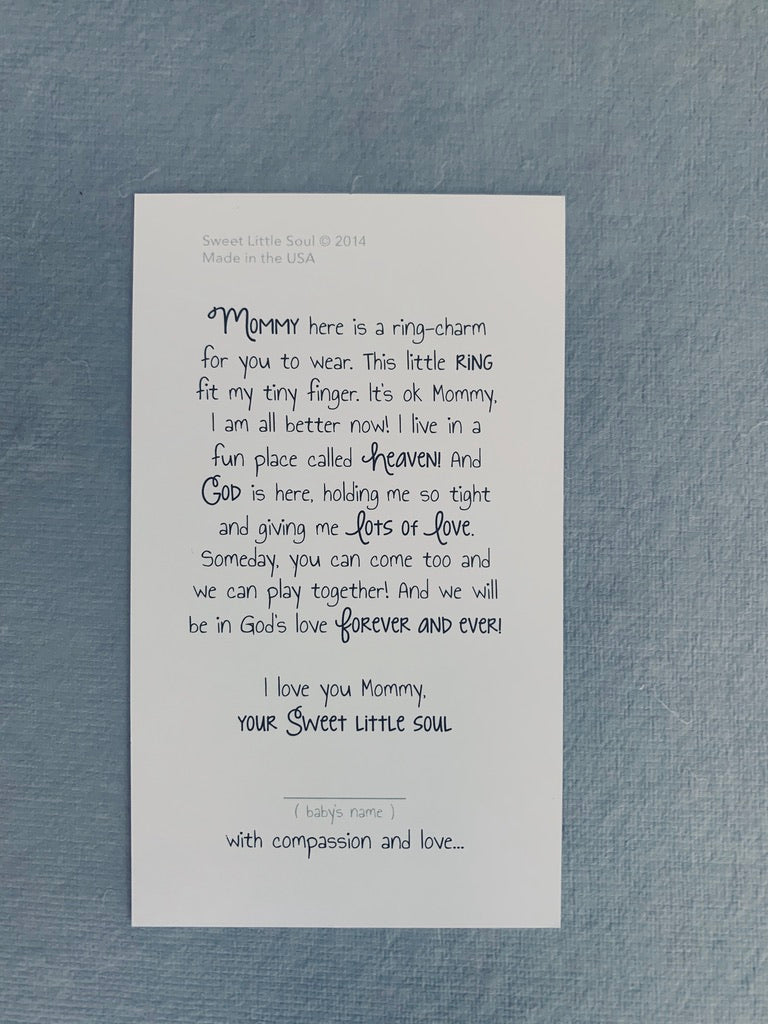 Sweet Little Soul © 2014
Made in the USA
Mommy here is a ring-charm
for you to wear. This little RING
fit my tiny finger. It's ok Mommy,
I am all better now! I live in a
fun place called heaven! And
God is here, holding me so tight
and giving me lots of love.
Someday, you can come too and
we can play together! And we will
be in God's love forever and ever!
I love you Mommy,
your Sweet Little soul
( baby's name )
with compassion and love...